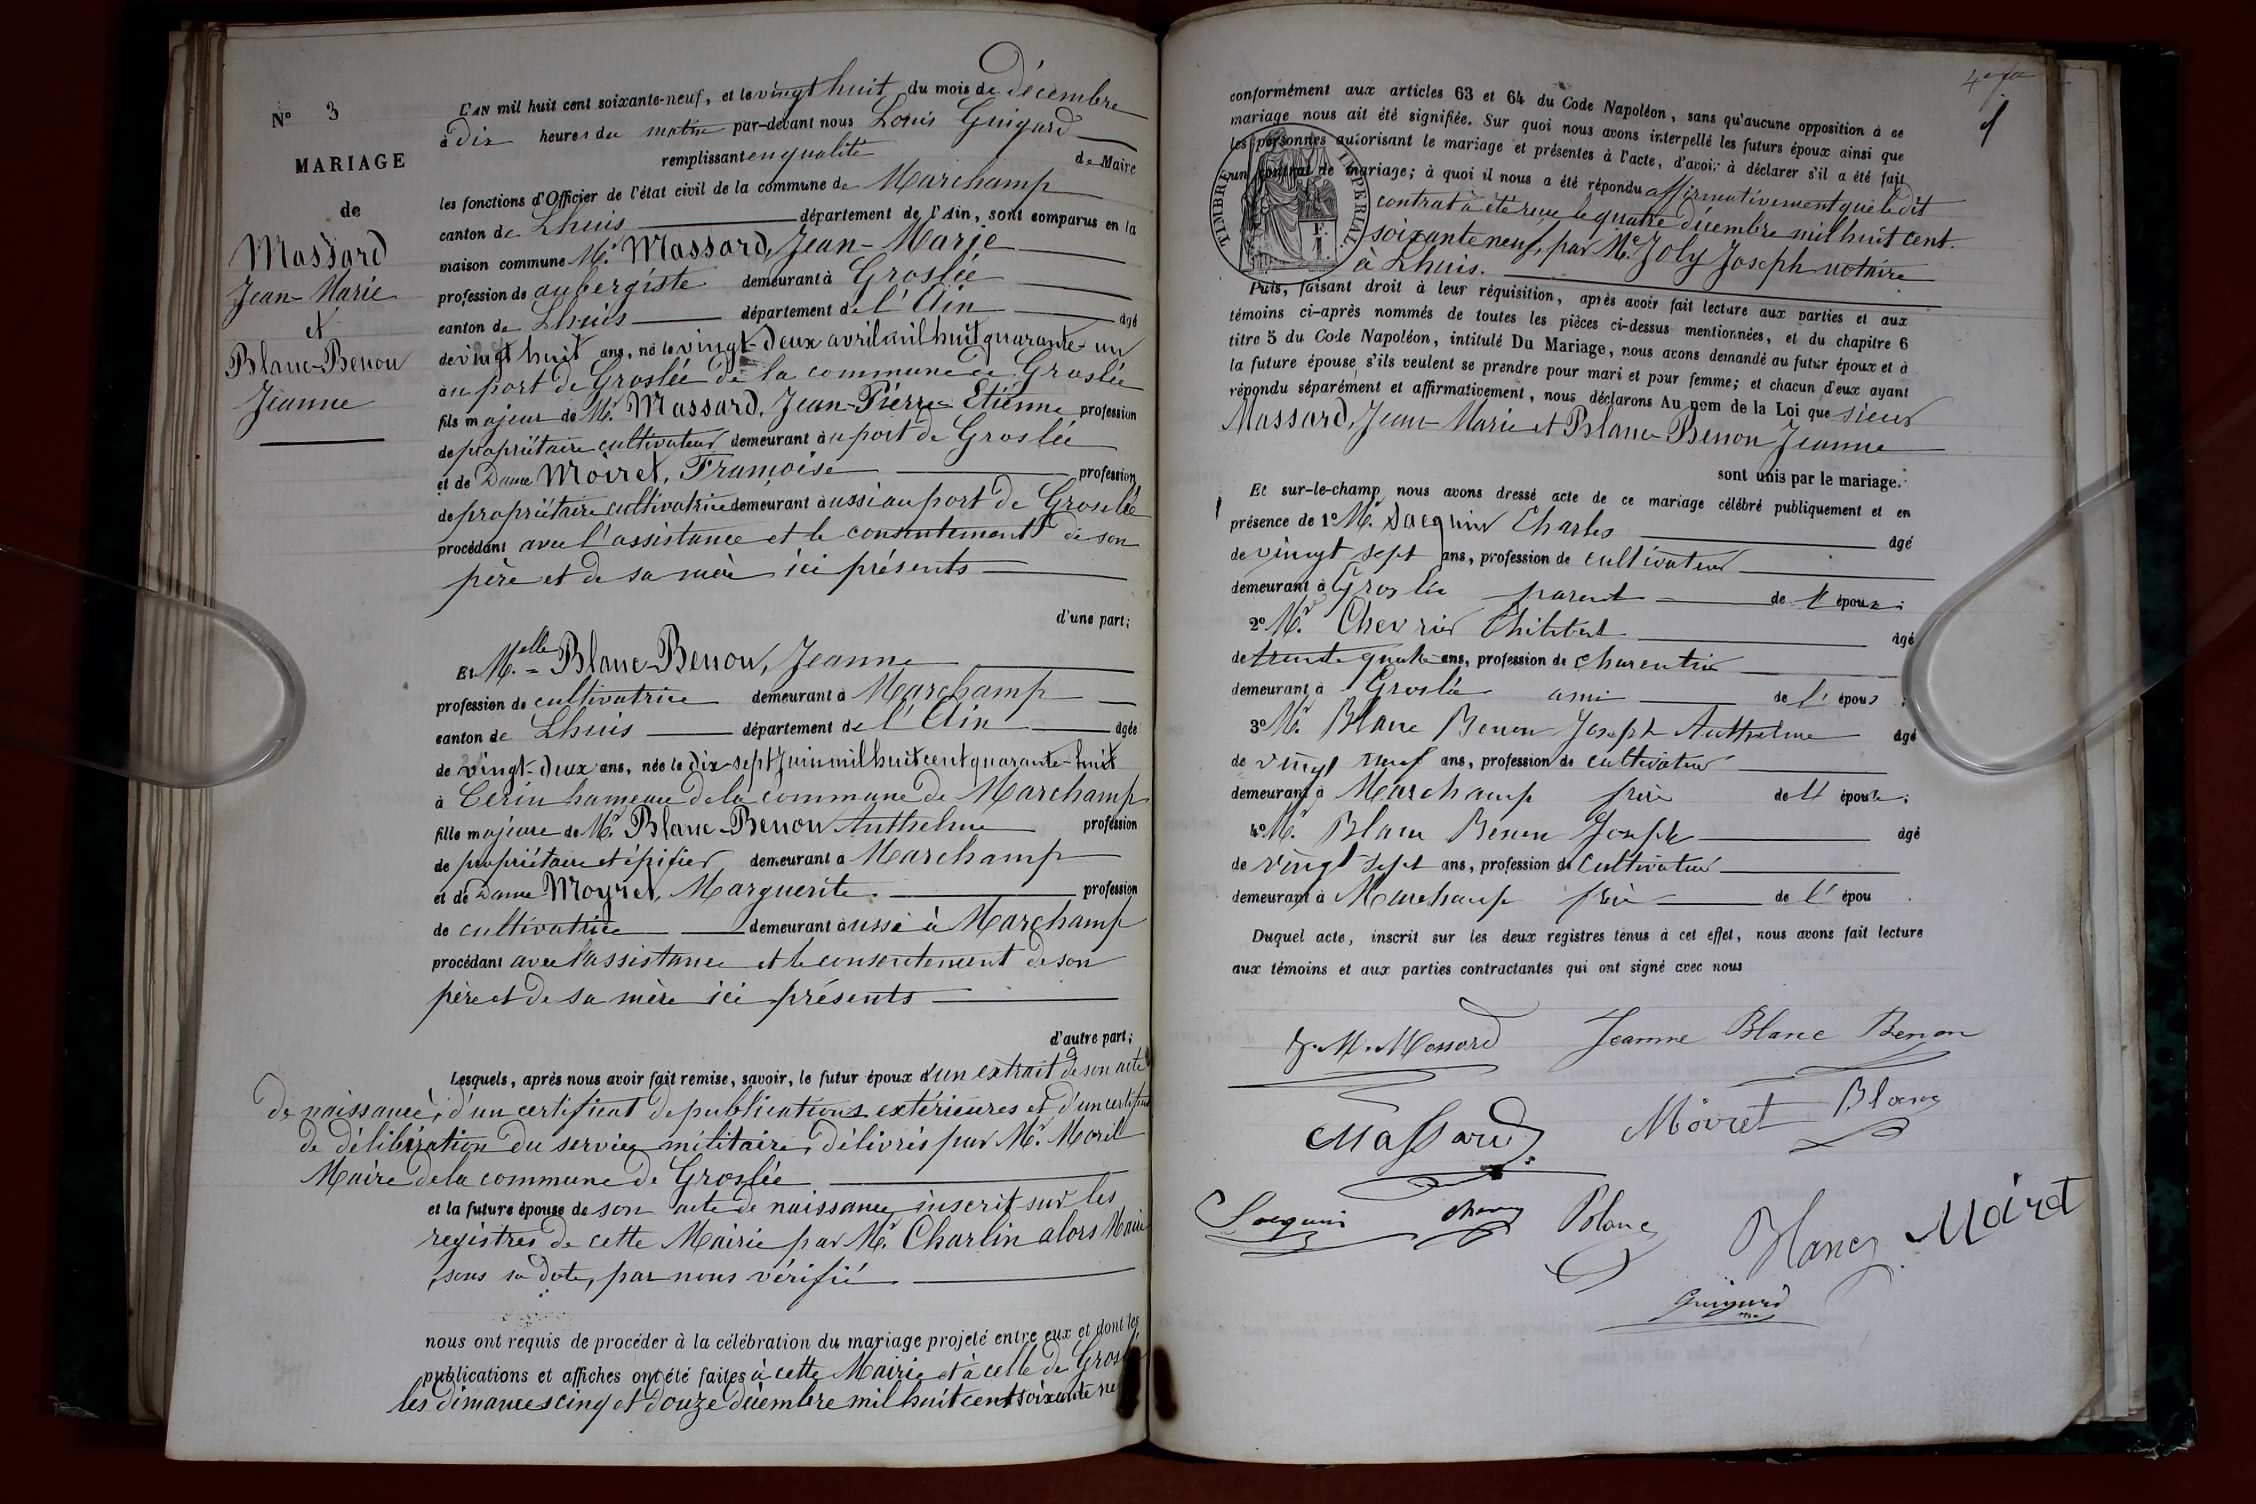 N° 3
MARIAGE
de
Massard
Jean-Marie
et
Blanc-Benon
Jeanne
L'AN mil huit cent soixante-neuf, et le vingt huit du mois de décembre
à dix heures du matin par-devant nous Louis Guigard
remplissant en qualité de Maire
les fonctions d'Officier de l'état civil de la commune de Marchamp
canton de Lhuis département de l'Ain, sont comparus en la
maison commune Mr. Massard, Jean-Marie
profession de aubergiste demeurant à Groslée
canton de Lhuis département de l'Ain âgé
de vingt huit ans, né le vingt-deux avril mil huit quarante-un
au port de Groslée de la commune de Groslée
fils majeur de Mr. Massard, Jean-Pierre Etienne profession
de propriétaire cultivateur demeurant au port de Groslée
et de Dame Moiret, Françoise profession
de propriétaire cultivatrice demeurant aussi au port de Groslée
procédant avec l'assistance et le consentement de son
père et de sa mère ici présents
d'une part;
Et Melle Blanc-Benon, Jeanne
profession de cultivatrice demeurant à Marchamp
canton de Lhuis département de l'Ain âgée
de vingt-deux ans, née le dix-sept Juin mil huit cent quarante-huit
à Cerin hameau de la commune de Marchamp
fille majeure de Mr. Blanc-Benon Anthelme profession
de propriétaire et épicier demeurant à Marchamp
et de Dame Moyret, Marguerite profession
de cultivatrice demeurant aussi à Marchamp
procédant avec l'assistance et le consentement de son
père et de sa mère ici présents
d'autre part;
Lesquels, après nous avoir fait remise, savoir, le futur époux d'un extrait de son acte
de naissance, d'un certificat de publications extérieures et d'un certificat
de délibération du service militaire, délivrés par Mr. Moril
Maire de la commune de Groslée
et la future épouse de son acte de naissance inscrit sur les
registres de cette Mairie par Mr. Charlin alors Maire
sous sa date, par nous vérifié
nous ont requis de procéder à la célébration du mariage projeté entre eux et dont les
publications et affiches ont été faites à cette Mairie et à celle de Groslée
les dimances cinq et douze décembre mil huit cent soixante
conformément aux articles 63 et 64 du Code Napoléon, sans qu'aucune opposition à ce
mariage nous ait été signifiée. Sur quoi nous avons interpellé les futurs époux ainsi que
les personnes autorisant le mariage et présentes à l'acte, d'avoir à déclarer s'il a été fait
un contrat de mariage; à quoi il nous a été répondu affirmativement que le dit
contrat à été reçu le quatre décembre mil huit cent
soixante neuf, par Me. Joly Joseph notaire
à Lhuis.
TIMBRE IMPERIAL.
1 F.
Puis, faisant droit à leur réquisition, après avoir fait lecture aux parties et aux
témoins ci-après nommés de toutes les pièces ci-dessus mentionnées, et du chapitre 6
titre 5 du Code Napoléon, intitulé Du Mariage, nous avons demandé au futur époux et à
la future épouse s'ils veulent se prendre pour mari et pour femme; et chacun d'eux ayant
répondu séparément et affirmativement, nous déclarons Au nom de la Loi que sieur
Massard, Jean-Marie et Blanc-Benon Jeanne
sont unis par le mariage.
Et sur-le-champ nous avons dressé acte de ce mariage célébré publiquement et en
présence de 1° Mr. Sacquin Charles âgé
de vingt sept ans, profession de cultivateur
demeurant à Groslée parent de l'époux;
2° Mr. Chevrier Philibert âgé
de trente quatre ans, profession de
demeurant à Groslée ami de l'époux;
3° Mr. Blanc Benon Joseph Anthelme âgé
de vingt neuf ans, profession de cultivateur
demeurant à Marchamp frère de l'épouse;
4° Mr. Blanc Benon Joseph âgé
de vingt-sept ans, profession de cultivateur
demeurant à Marchamp frère de l'épou
Duquel acte, inscrit sur les deux registres tenus à cet effet, nous avons fait lecture
aux témoins et aux parties contractantes qui ont signé avec nous
J. M. Massard Jeanne Blanc Benon
Massard Moiret Blanc
Sacquin Blanc Blanc Moiret
Guigard